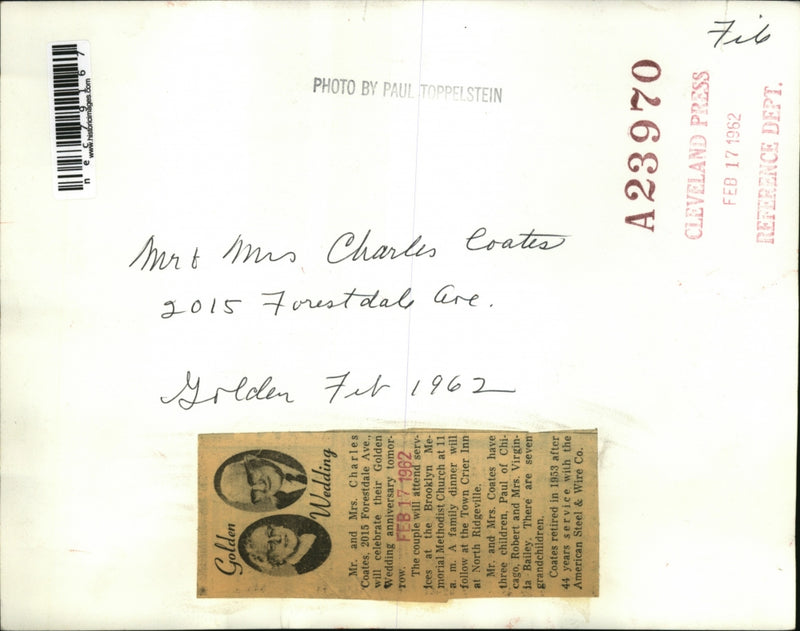 Feb
PHOTO BY PAUL TOPPELSTEIN
A23970
CLEVELAND PRESS
FEB 17 1962
REFERENCE DEPT.
nec79167
www.historicimages.com
Mr & Mrs Charles Coates
2015 Forestdale Ave.
Golden Feb 1962
Golden
Wedding
Mr. and Mrs. Charles
Coates, 2015 Forestdale Ave.,
will celebrate their Golden
Wedding anniversary tomor-
row.
FEB 17 1962
The couple will attend serv-
ices at the Brooklyn Me-
morial Methodist Church at 11
a. m. A family dinner will
follow at the Town Crier Inn
at North Ridgeville.
Mr. and Mrs. Coates have
three children, Paul of Chi-
cago, Robert and Mrs. Virgin-
ia Bailey. There are seven
grandchildren.
Coates retired in 1953 after
44 years service with the
American Steel & Wire Co.